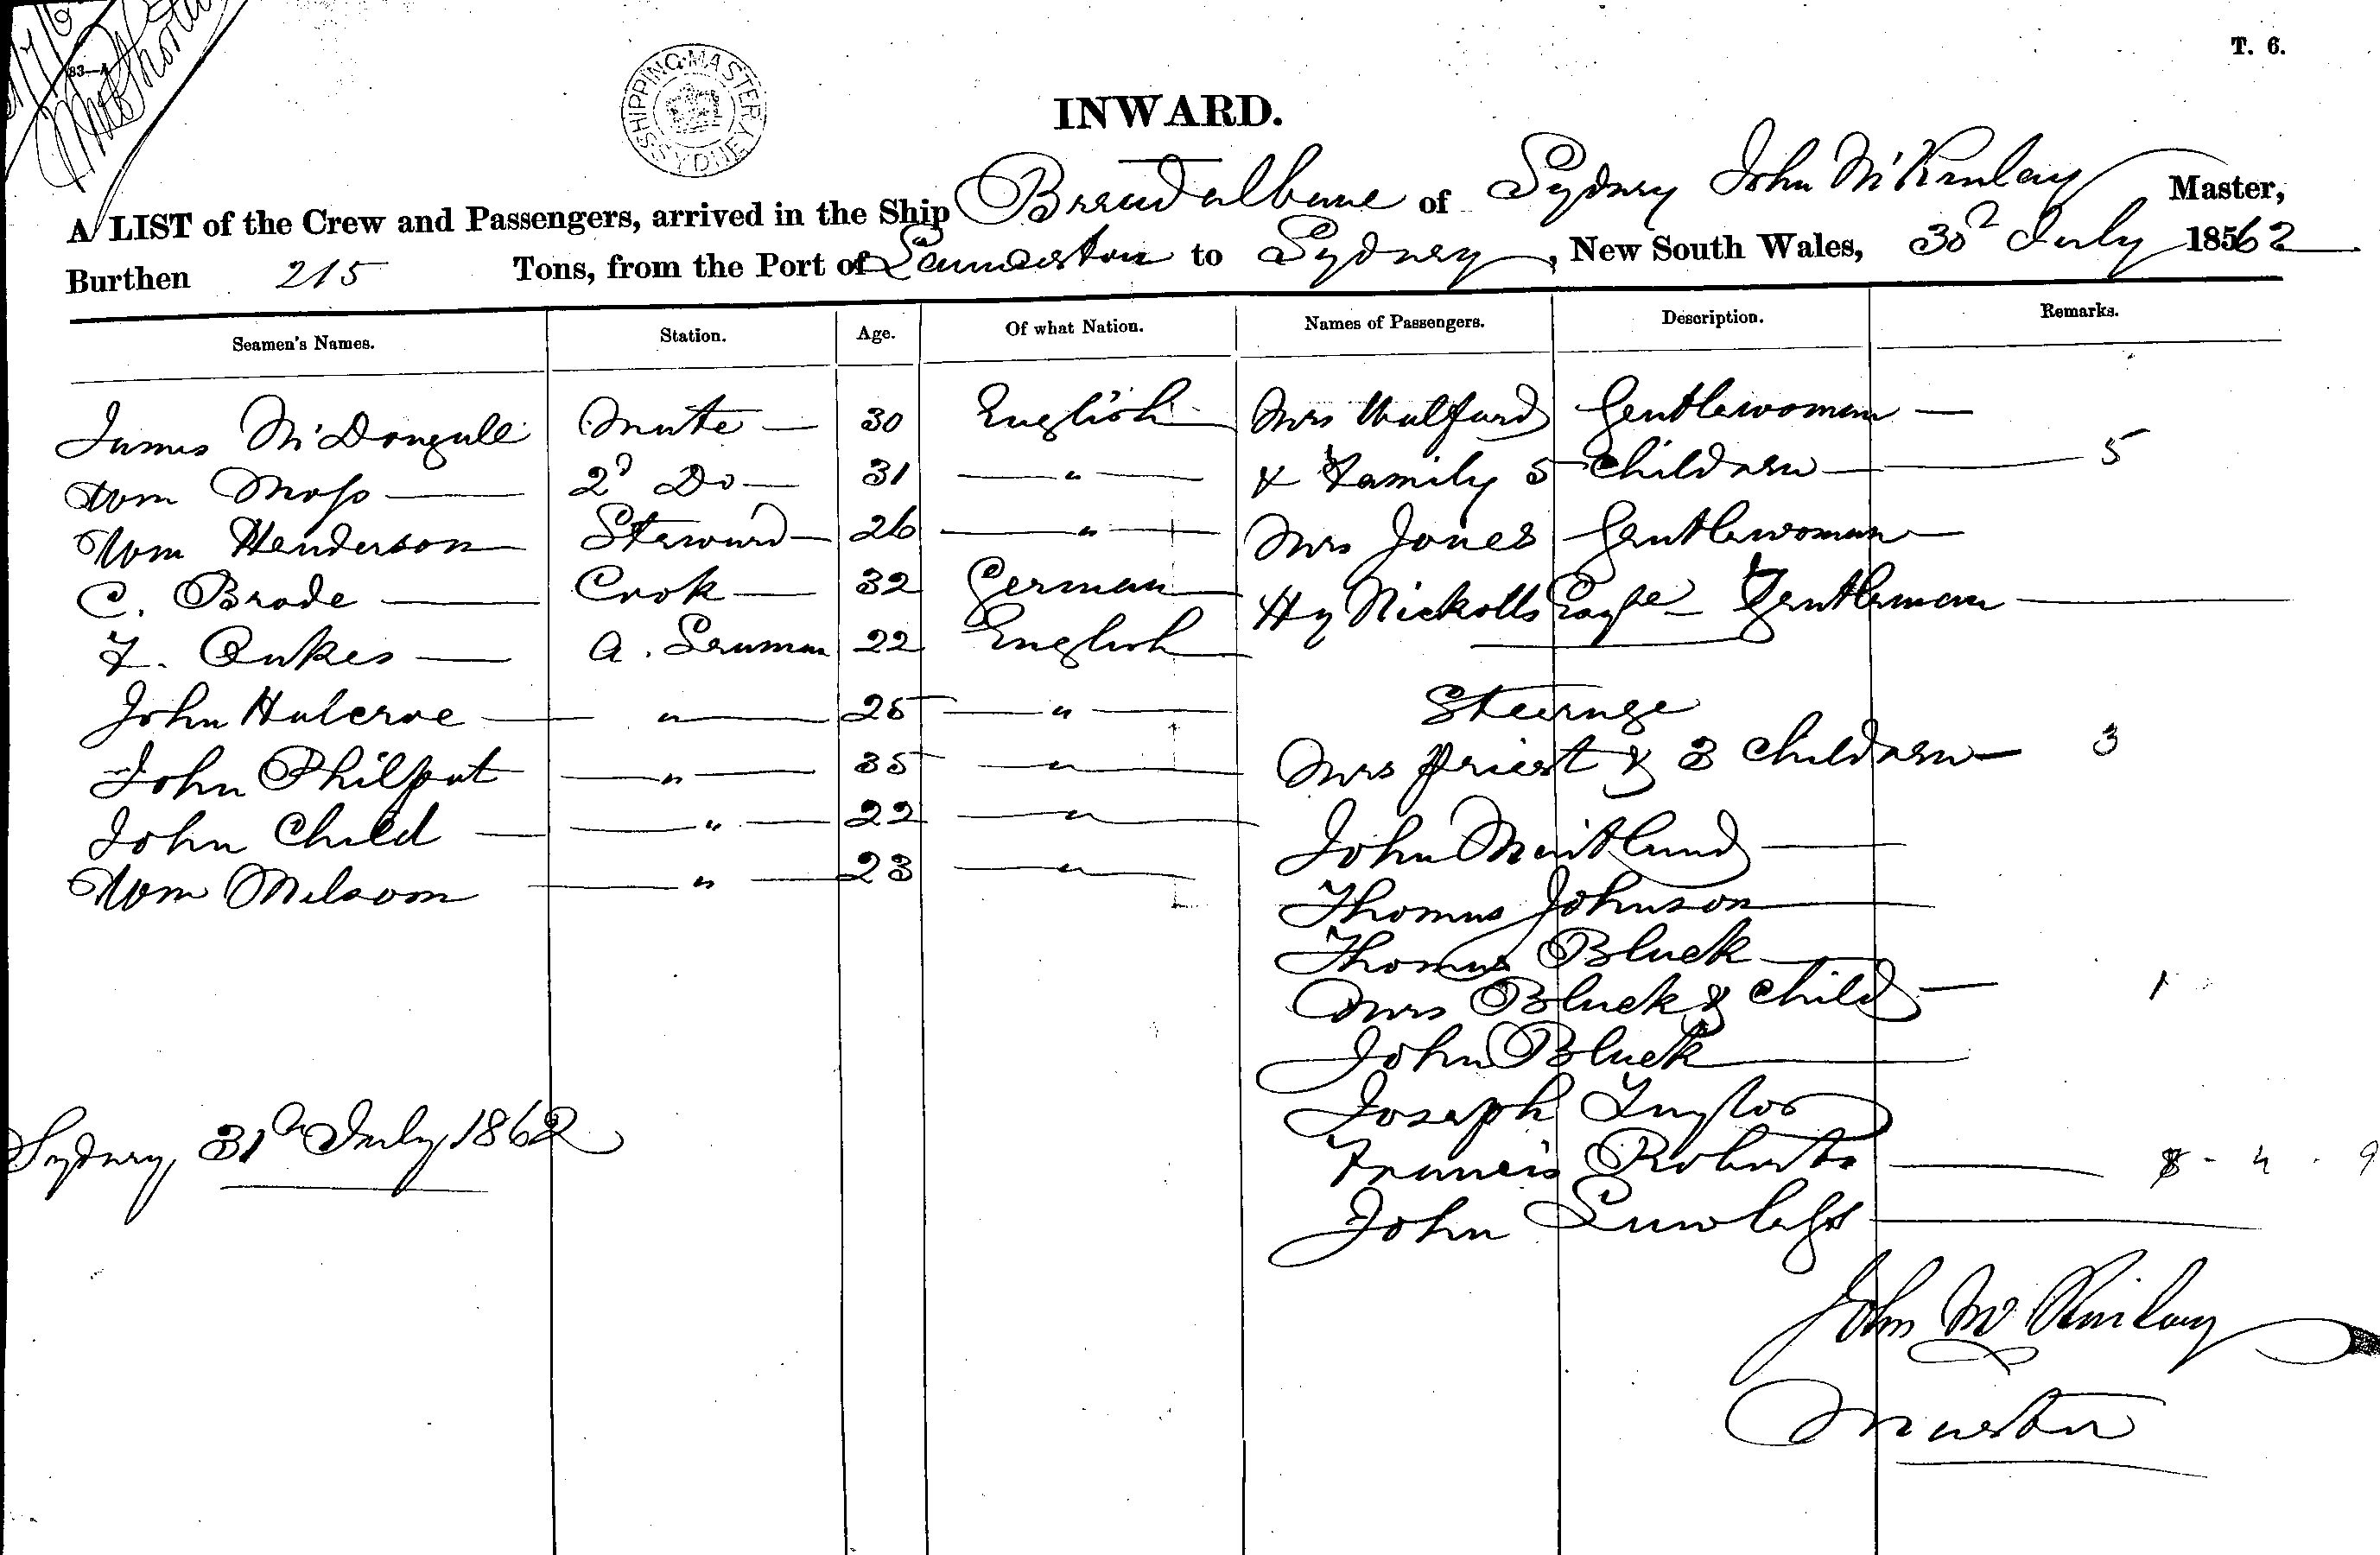 83—A
T. 6.
SHIPPING MASTER SYDNEY
INWARD.
A LIST of the Crew and Passengers, arrived in the Ship Breadalbane of Sydney John McKinlay Master,
Burthen 215 Tons, from the Port of Launceston to Sydney, New South Wales, 30th July 1862
Seamen's Names. Station. Age. Of what Nation. Names of Passengers. Description. Remarks.
James McDougall Mate 30 English Mrs Walford Gentlewoman
Wm Moss 2d Do 31 " & Family 5 Children 5
Wm Henderson Steward 26 " Mrs Jones Gentlewoman
C. Brade Cook 32 German Hy Nickolls Esqre Gentleman
F. Oakes A. Seaman 22 English
John Halcroe " 25 " Steerage
John Philpot " 35 " Mrs Priest & 3 Children 3
John Child " 22 " John Maitland
Wm Milsom " 23 " Thomas Johnson
Thomas Bluck
Mrs Bluck & Child 1
John Bluck
Joseph Taylor
Sydney, 31st July, 1862
Francis Roberts 8 - 4 - 9
John
John McKinlay
Master